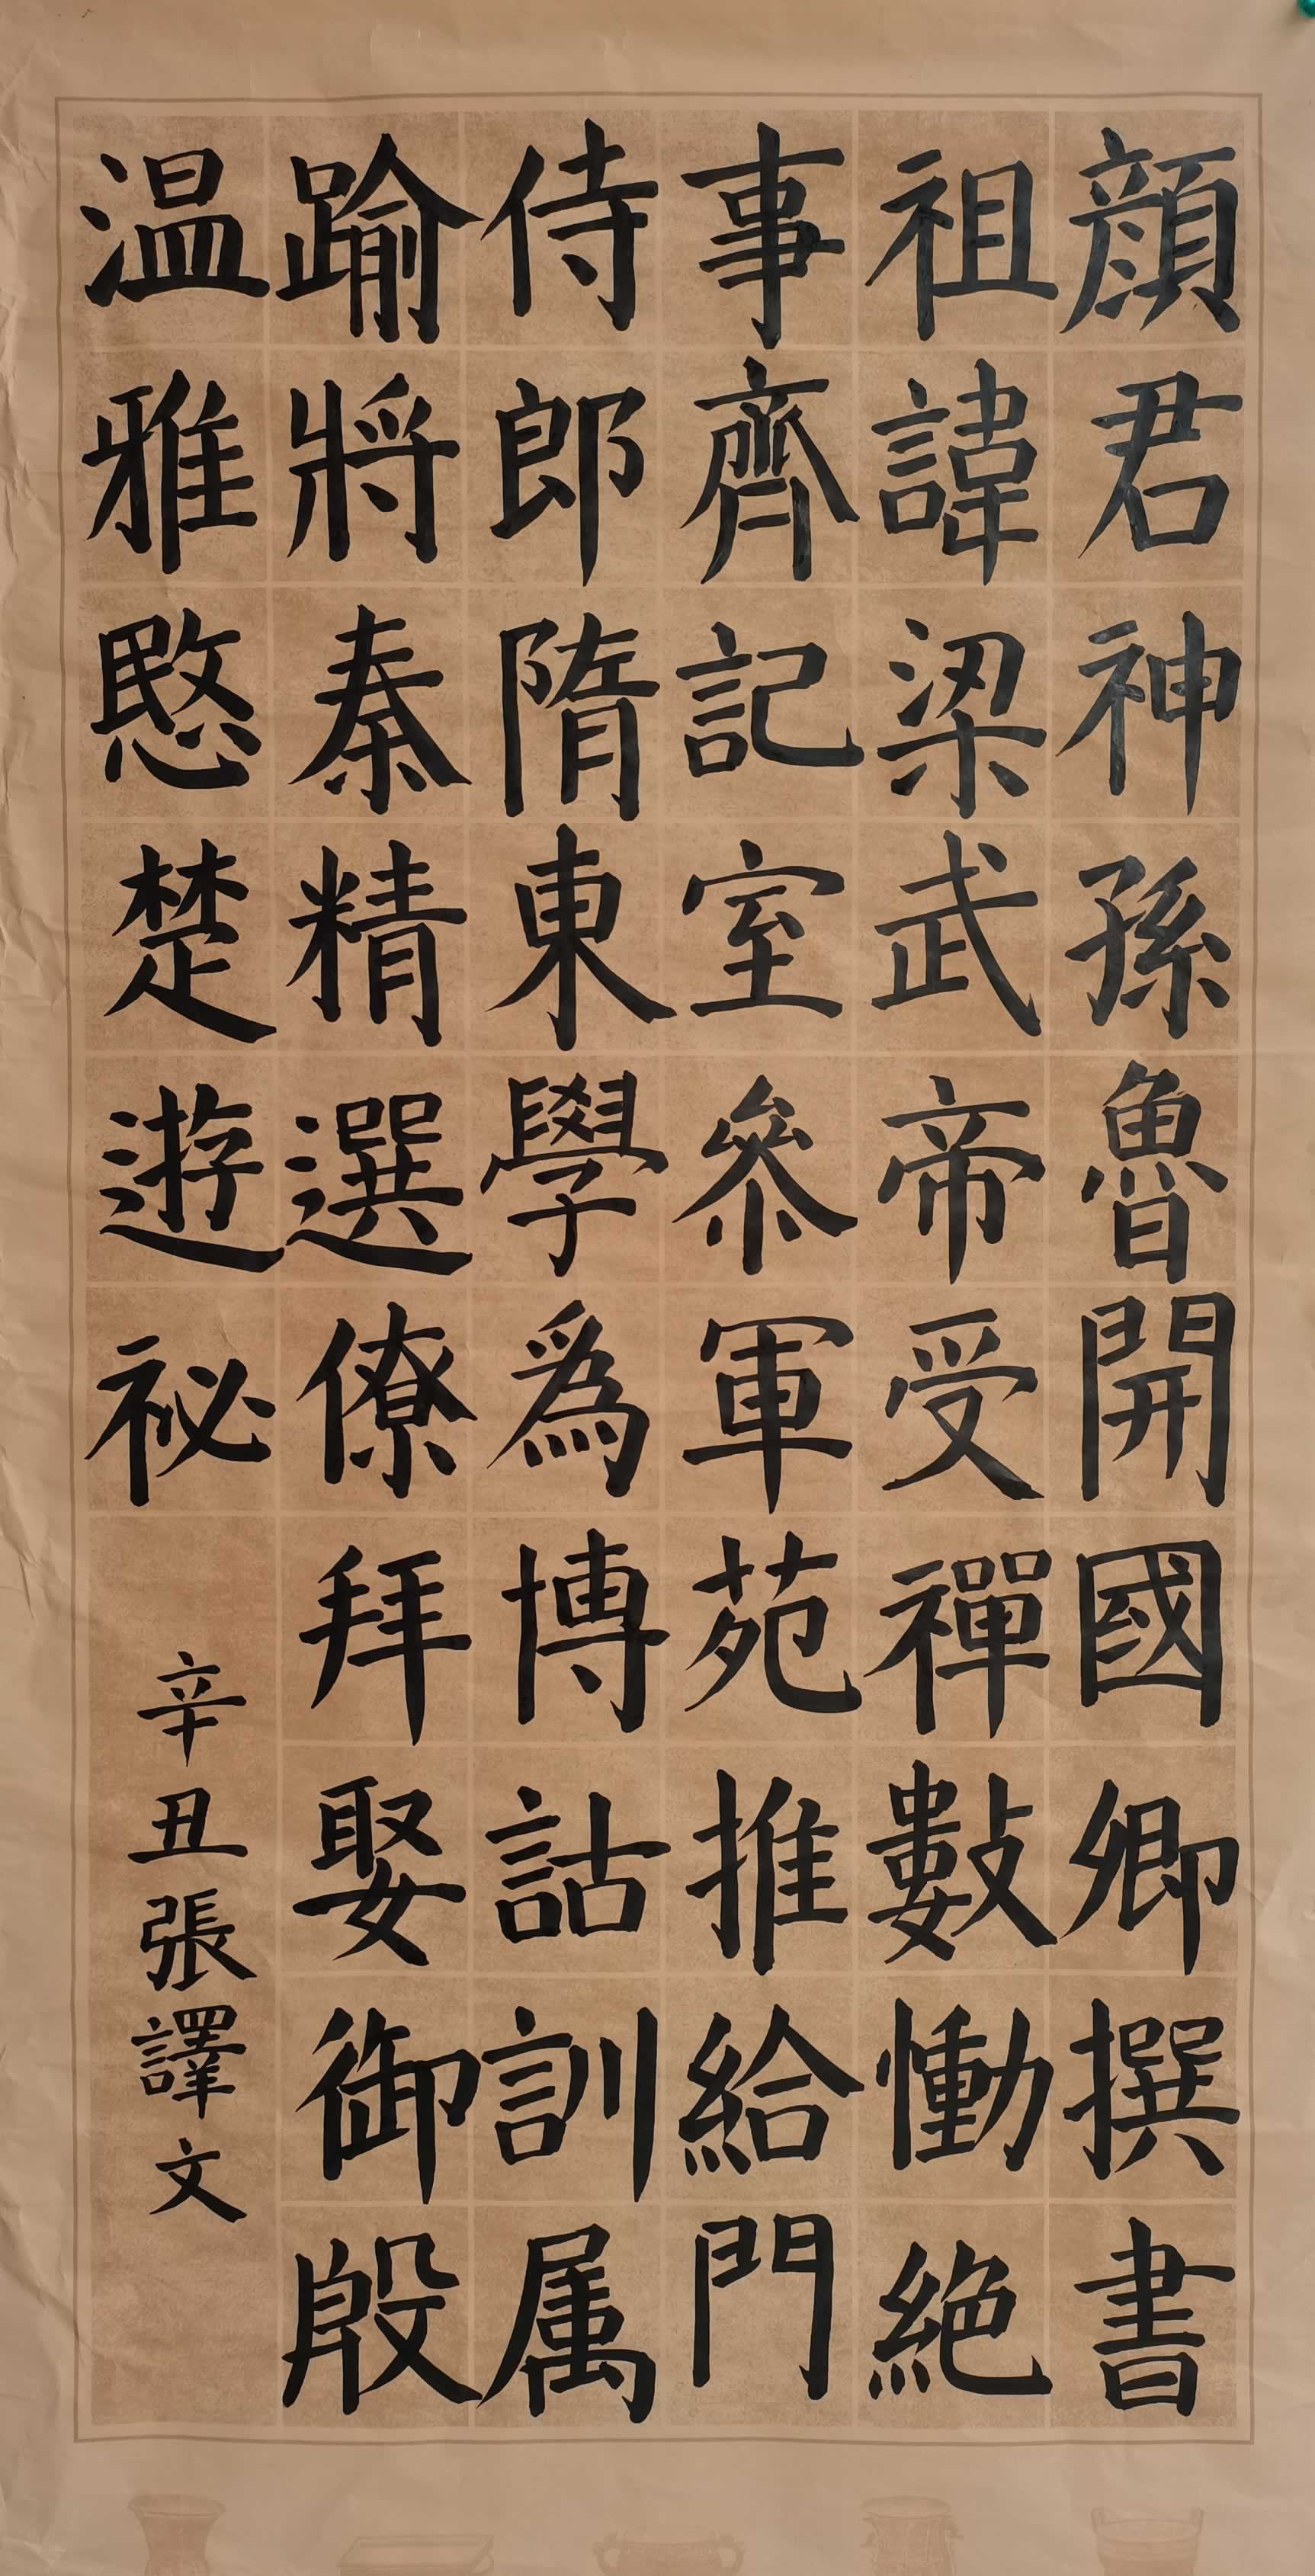 顏君神孫魯開國卿撰書
祖諱梁武帝受禪數慟絕
事齊記室參軍苑推給門
侍郎隋東學爲博詁訓属
踰將秦精選僚拜娶御殷
温雅愍楚遊祕
辛丑張譯文